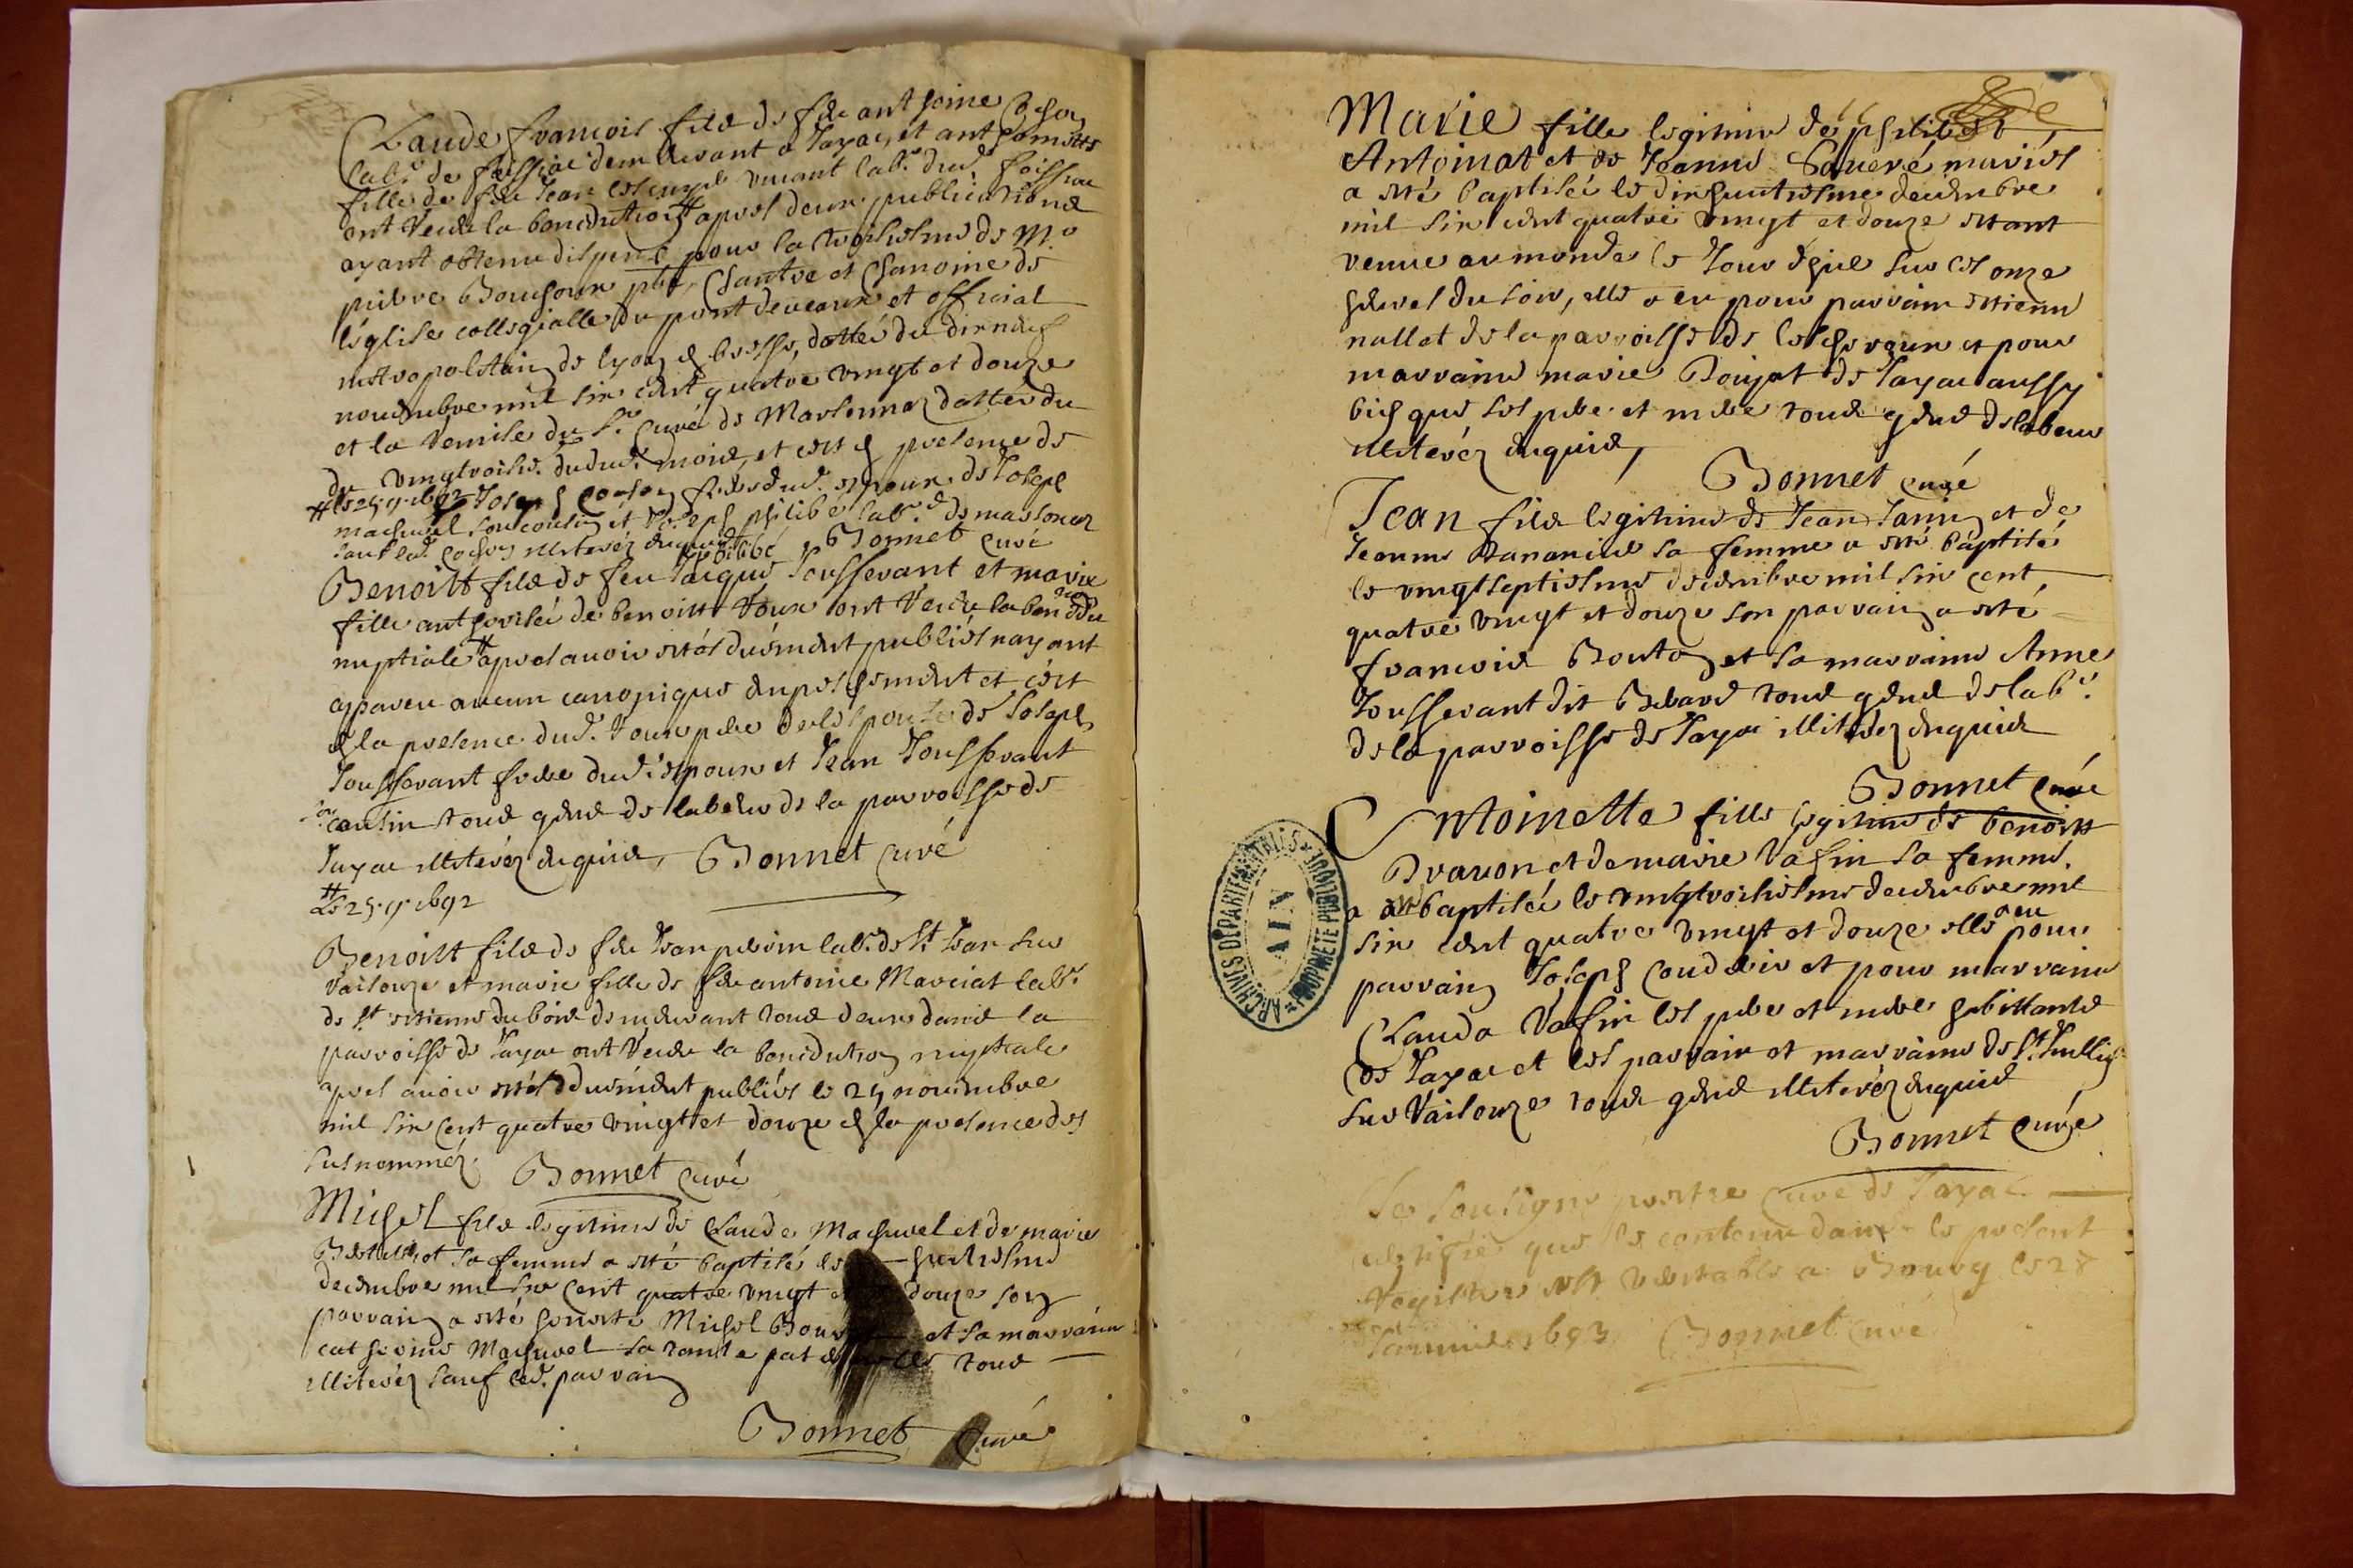 Claude francois filz de feu anthoine
lab.r de foissiat demeurant a Jayac, et anthoinette
fille de feu Jean vivant lab.r dud. foissiat
ont receu la benediction # apres deux publications
ayant obtenu dispense pour la troisiesme de M.r
pierre ptre, Chantre et Chanoine de
l'église collegialle du pont de veaux et official
metropolitain de lyon en bresse, dattée du dixneuf
novembre mil six cent quatre vingt et douze
et la remise du s.r Curé de Marsonnaz dattée du
du vingtroisie. dudud. mois, et cest en presence de
# le 25. 9. 1692 Joseph frere dud. espoux, de Joseph
machuret son cousin et Joseph philibé lab.r de marsonnaz
sauf led. illiterez enquis philibé Bonnet curé
Benoitt filz de feu Jacques Joussevant et marie
fille authorisée de benoitt roux ont receu la benediction
nuptiale # apres avoir estés deuement publiés nayant
apareu aucun canonique empeschement et cest
en la presence dud. roux pere de lespouse de Joseph
Joussevant frere dud. espoux et Jean Joussevant
son cousin tous gens de labeur de la parroisse de
Jayac illiterez enquis, Bonnet curé
# Le 25. 9. 1692
Benoitt filz de feu Jean perrin lab.r de St Jean sur
raisouze et marie fille de feu antoine Marciat lab.r
de St estienne du bois demeurant tous deux dans la
parroisse de Jayac ont receu la benediction nuptiale
apres avoir estés deuement publiés le 25 novembre
mil six cent quatre vingt et douze en la presence des
susnommez. Bonnet curé
Michel filz legitime de Claude Machurel et de marie
sa femme a esté baptisé le huictiesme
decembre mil six cent quatre vingt et douze son
parrain a esté honeste Michel et sa marraine
catherine Machurel sa tante tous
illiterez sauf led. parrain
Bonnet Curé
Marie fille legitime de philibert
Antoinat et de Jeanne mariés
a esté baptisée le dixhuictiesme decembre
mil six cent quatre vingt et douze estant
venue au monde le Jour d'hier sur les onze
heures du soir, elle a eu pour parrain estienne
nallet de la parroisse de lescheroux et pour
marraine marie Boujat de Jayac aussy
bien que ses pere et mere tous gens de labeur
illiterez enquis,
Bonnet curé
Jean filz legitime de Jean Janin et de
Jeanne sa femme a esté baptisé
le vingtseptiesme decembre mil six cent
quatre vingt et douze son parrain a esté
francois Bouton et sa marraine Anne
Joussevant dit tous gens de lab.r
de la parroisse de Jayac illiterez enquis
Bonnet Curé
Antoinette fille legitime de benoitt
Bravon et de marie Vafin sa femme
a esté baptisée le vingtroisiesme decembre mil
six cent quatre vingt et douze elle a eu pour
parrain Joseph et pour marraine
Clauda Vafin les pere et mere habittants
de Jayac et les parrain et marraine de St Jullien
sur raisouze tous gens illiterez enquis
Bonnet Curé
Je soussigné prestre Curé de Jayac
certifie que le contenu dans le present
registre est veritable a Bourg le 28
Janvier 1693 Bonnet Curé
ARCHIVES DÉPARTEMENTALES
AIN
PROPRIÉTÉ PUBLIQUE